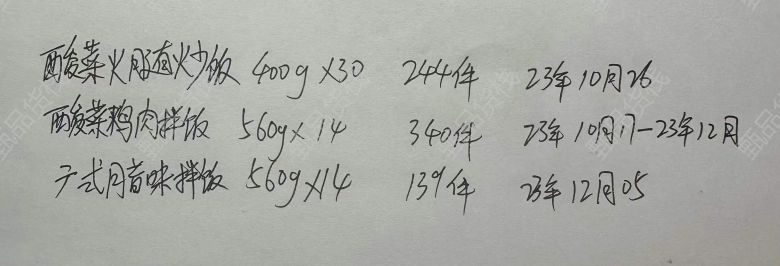 酸菜火腿炒饭 400g×30 244件 23年10月26
酸菜鸡肉拌饭 560g×14 340件 23年10月17-23年12月
广式腊味拌饭 560g×14 139件 23年12月05